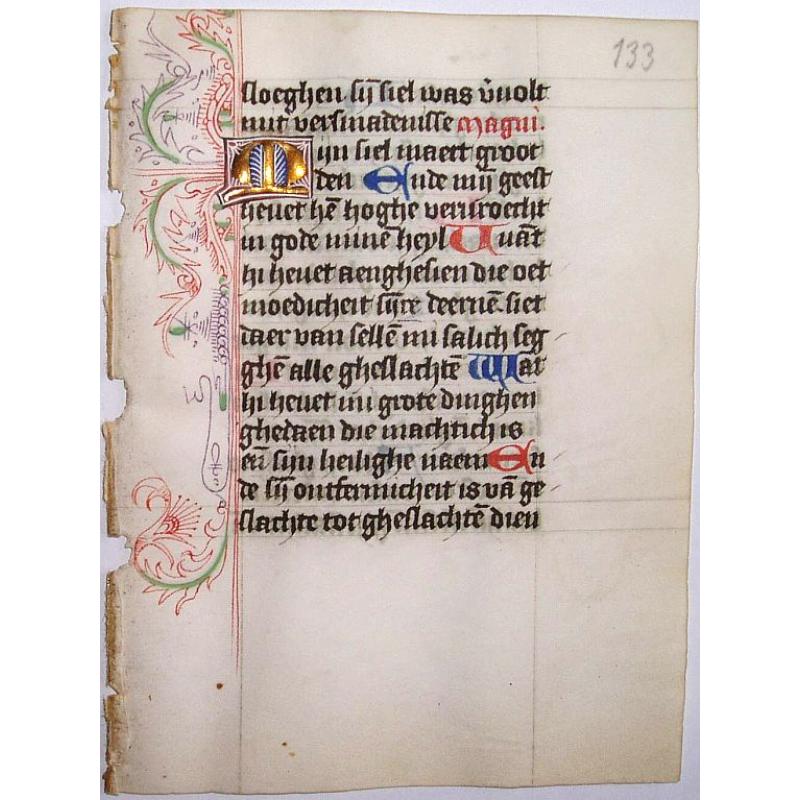 133
sloeghen sij siel was v̄uolt
mit versmadenisse Magnī.
Mijn siel maect groot
den Ende mijn geest
heuet hē hoghe veruroecht
in gode minē heyl Want
hi heuet aenghesien die oet
moedicheit sijre deernē. siet
daer van sellē mi salich seg
ghē alle gheslachtē Wat
hi heuet mi grote dinghen
ghedaen die machtich is
eñ sijn heilighe naem En
de sij ontfermicheit is vā ge
slachte tot gheslachtē dien